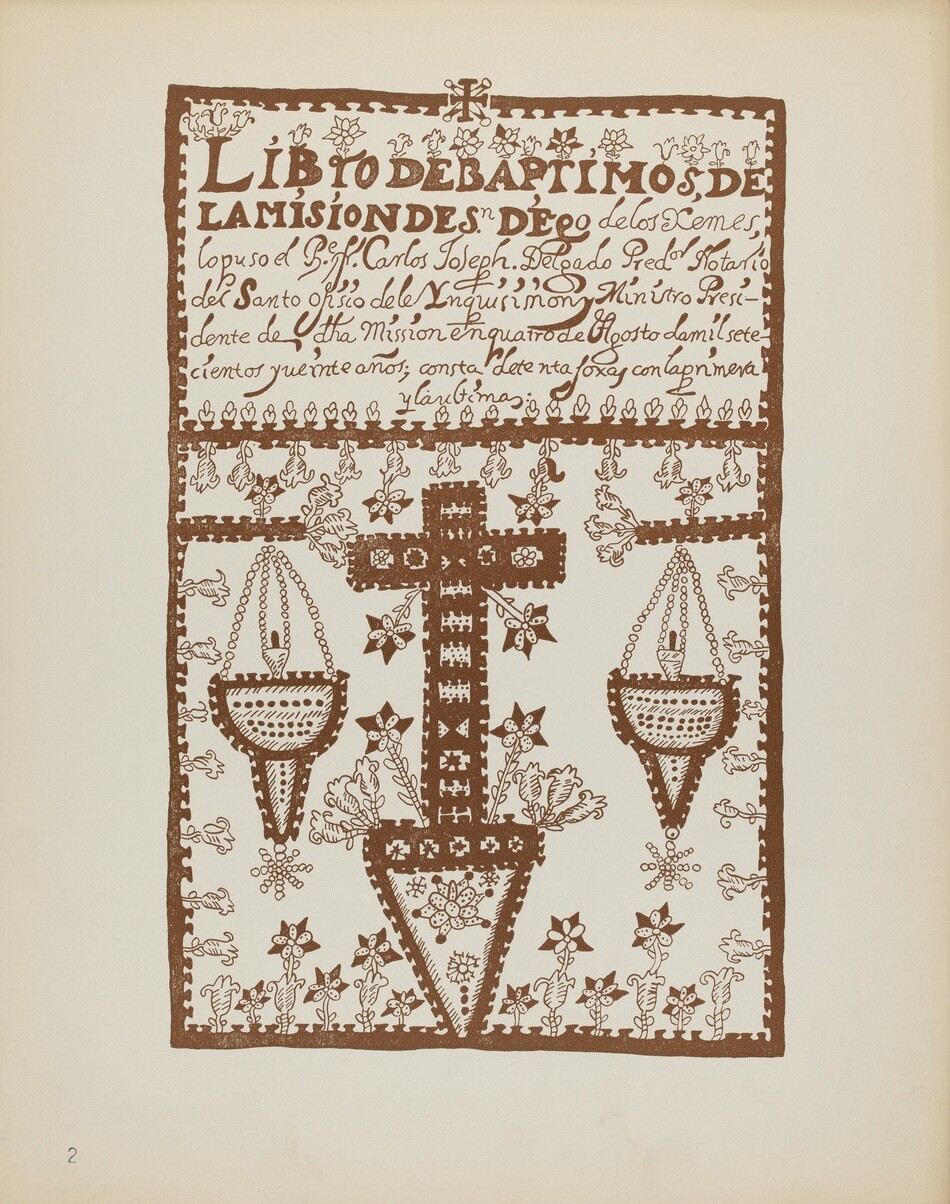 LIBrO DE BAPTIMOS, DE
LA MISION DE S.n DIEGO de los Xemes,
lo puso el P.e fr. Carlos Joseph. Delgado Pred.or Notario
del Santo ofisio de le Ynquisision, y Ministro Presi-
dente de dha Mission en quatro de Agosto da mil sete-
cientos y ueinte años; consta de tenta foxas con la primera
y la ultima:
2